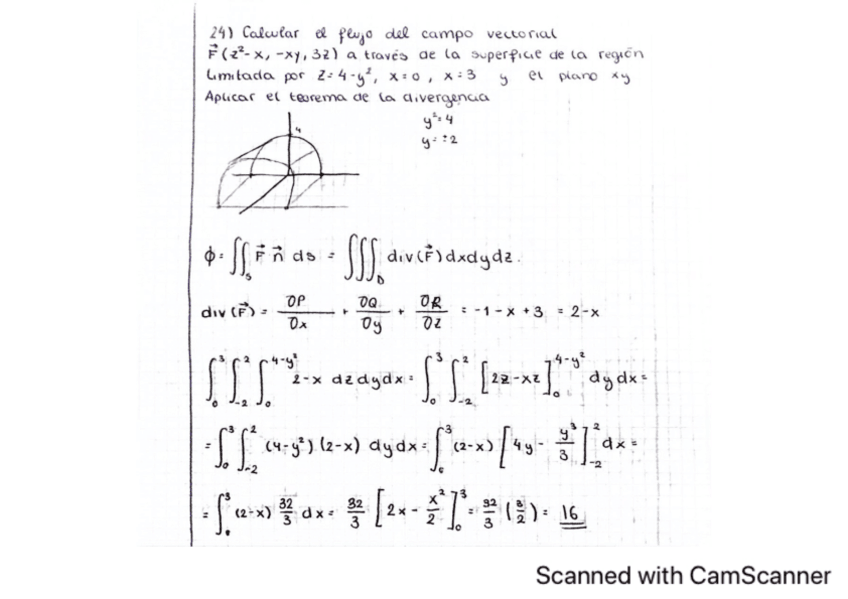 24) Calcular el flujo del campo vectorial
F⃗(z²-x, -xy, 3z) a través de la superficie de la región
limitada por z=4-y², x=0, x=3 y el plano xy
Aplicar el teorema de la divergencia
y²=4
y=±2
4
ϕ=∬_S F⃗ n⃗ ds = ∭_D div(F⃗)dxdydz.
div(F⃗) = ∂P/∂x + ∂Q/∂y + ∂R/∂z = -1-x+3 = 2-x
∫₀³ ∫₋₂² ∫₀^(4-y²) 2-x dzdydx = ∫₀³ ∫₋₂² [2z-xz]₀^(4-y²) dydx=
= ∫₀³ ∫₋₂² (4-y²)(2-x) dydx = ∫₀³ (2-x) [4y - y³/3]₋₂² dx =
= ∫₀³ (2-x) 32/3 dx = 32/3 [2x - x²/2]₀³ = 32/3 (3/2) = 16
Scanned with CamScanner